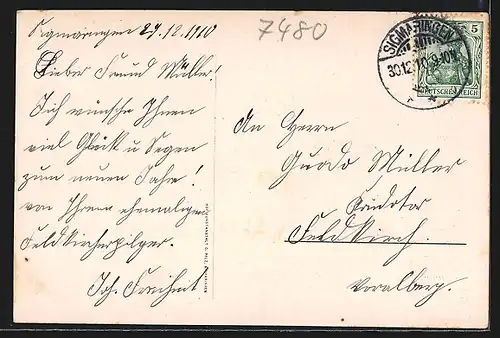 Sigmaringen 29.12.1910
7480
Lieber Freund Müller!
Ich wünsche Ihnen
viel Glück u Segen
zum neuen Jahre!
von Ihrem ehemaligen
Feldkircherpilger.
Joh. Freihent
SIGMARINGEN
30.12.10.9-10V.
5
DEUTSCHES REICH
An Herrn
Guido Müller
Feldkirch.
Voralberg.